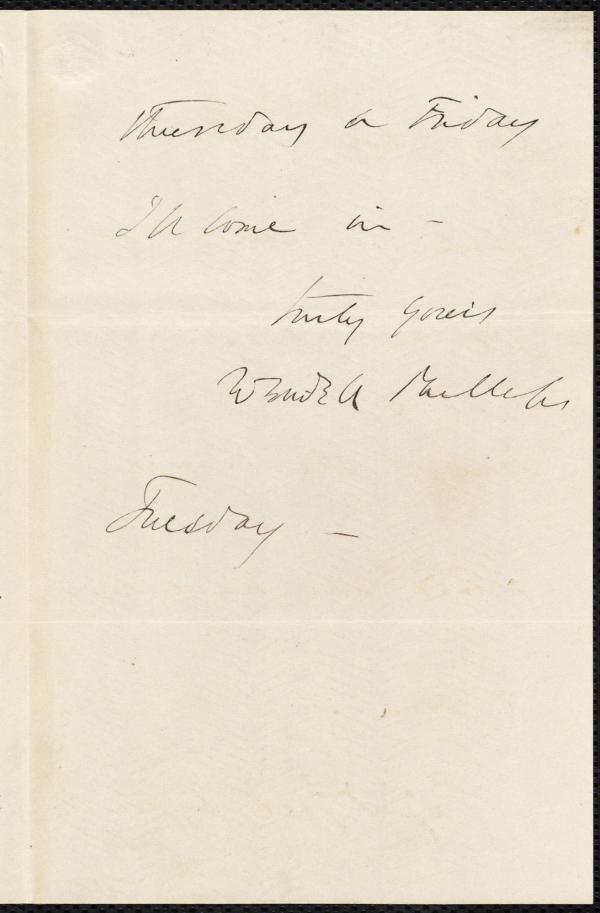 Thursday or Friday
I'll come in –
truly yours
Wendell Phillips
Tuesday –